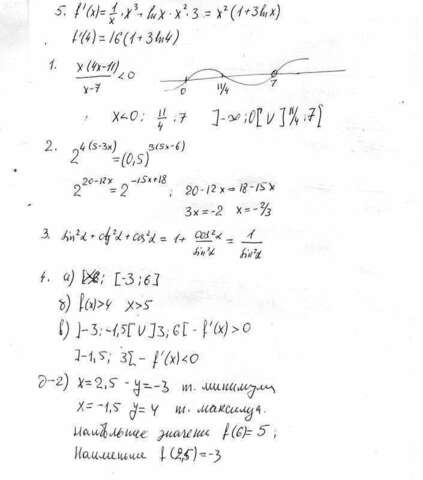 5. f'(x) = 1/x · x³ + ln x · x² · 3 = x²(1+3lnx)
f'(4) = 16(1+3ln4)
1. x(4x-11)/(x-7) < 0
0 11/4 7
x<0; 11/4; 7 ]-∞;0[ U ]11/4; 7[
2. 2^4(5-3x) = (0,5)^3(5x-6)
2^20-12x = 2^-15x+18; 20-12x = 18-15x
3x=-2 x=-2/3
3. sin²α + ctg²α + cos²α = 1 + cos²α/sin²α = 1/sin²α
4. а) [-3; 6]
б) f(x)>4 x>5
в) ]-3; -1,5[ U ]3; 6[ - f'(x)>0
]-1,5; 3[ - f'(x)<0
д-г) x=2,5 - y=-3 т. минимума
x=-1,5 y=4 т. максимума.
Наибольшее значение f(6)=5;
Наименьшее f(2,5)=-3